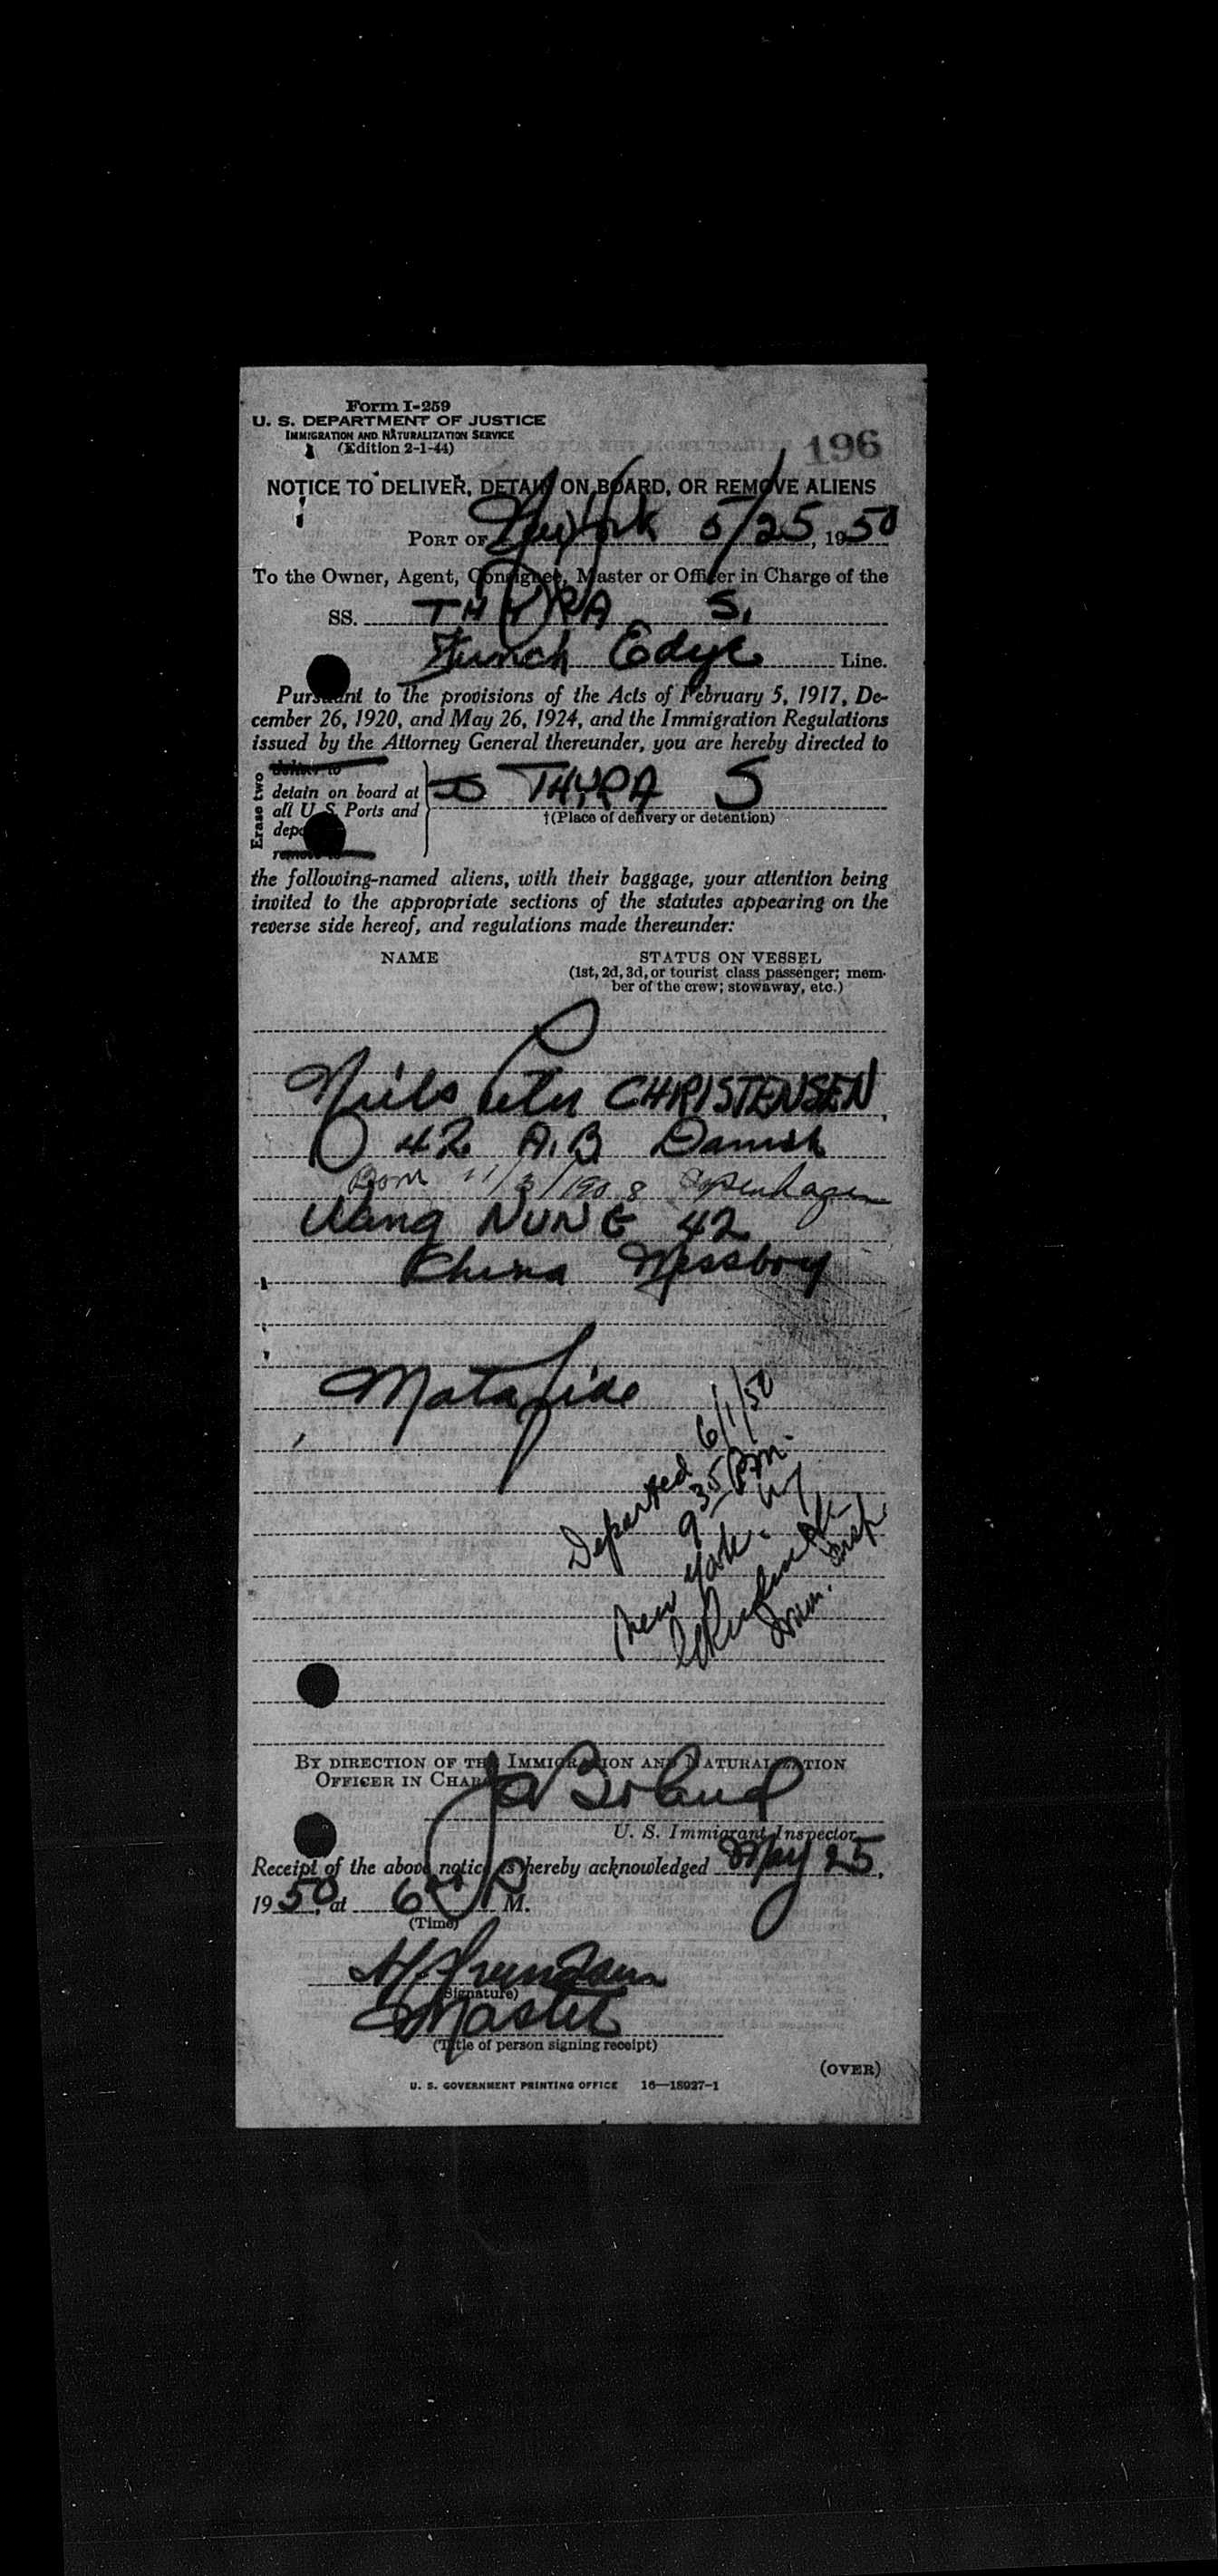 Form I-259
U. S. DEPARTMENT OF JUSTICE
IMMIGRATION AND NATURALIZATION SERVICE
(Edition 2-1-44)
196
NOTICE TO DELIVER, DETAIN ON BOARD, OR REMOVE ALIENS
PORT OF New York 5/25, 1950
To the Owner, Agent, Consignee, Master or Officer in Charge of the
SS. THYRA S.
Funch Edye Line.
Pursuant to the provisions of the Acts of February 5, 1917, De-
cember 26, 1920, and May 26, 1924, and the Immigration Regulations
issued by the Attorney General thereunder, you are hereby directed to
Erase two
deliver to
detain on board at
all U. S. Ports and
depo
remove to
THYRA S
†(Place of delivery or detention)
the following-named aliens, with their baggage, your attention being
invited to the appropriate sections of the statutes appearing on the
reverse side hereof, and regulations made thereunder:
NAME STATUS ON VESSEL
(1st, 2d, 3d, or tourist class passenger; mem-
ber of the crew; stowaway, etc.)
Niels Peter CHRISTENSEN
42 A.B. Danish
Born 11/3/1908 Copenhagen
Wang NUNG 42
China Messboy
Mala fide
Departed 6/1/50
9 35 P.M.
New York. NY
Imm. Insp.
BY DIRECTION OF THE IMMIGRATION AND NATURALIZATION
OFFICER IN CHARGE
Boland
U. S. Immigrant Inspector.
Receipt of the above notice is hereby acknowledged May 25,
1950, at 6 P M.
(Time)
(Signature)
Master
(Title of person signing receipt)
(OVER)
U. S. GOVERNMENT PRINTING OFFICE 16—18927-1